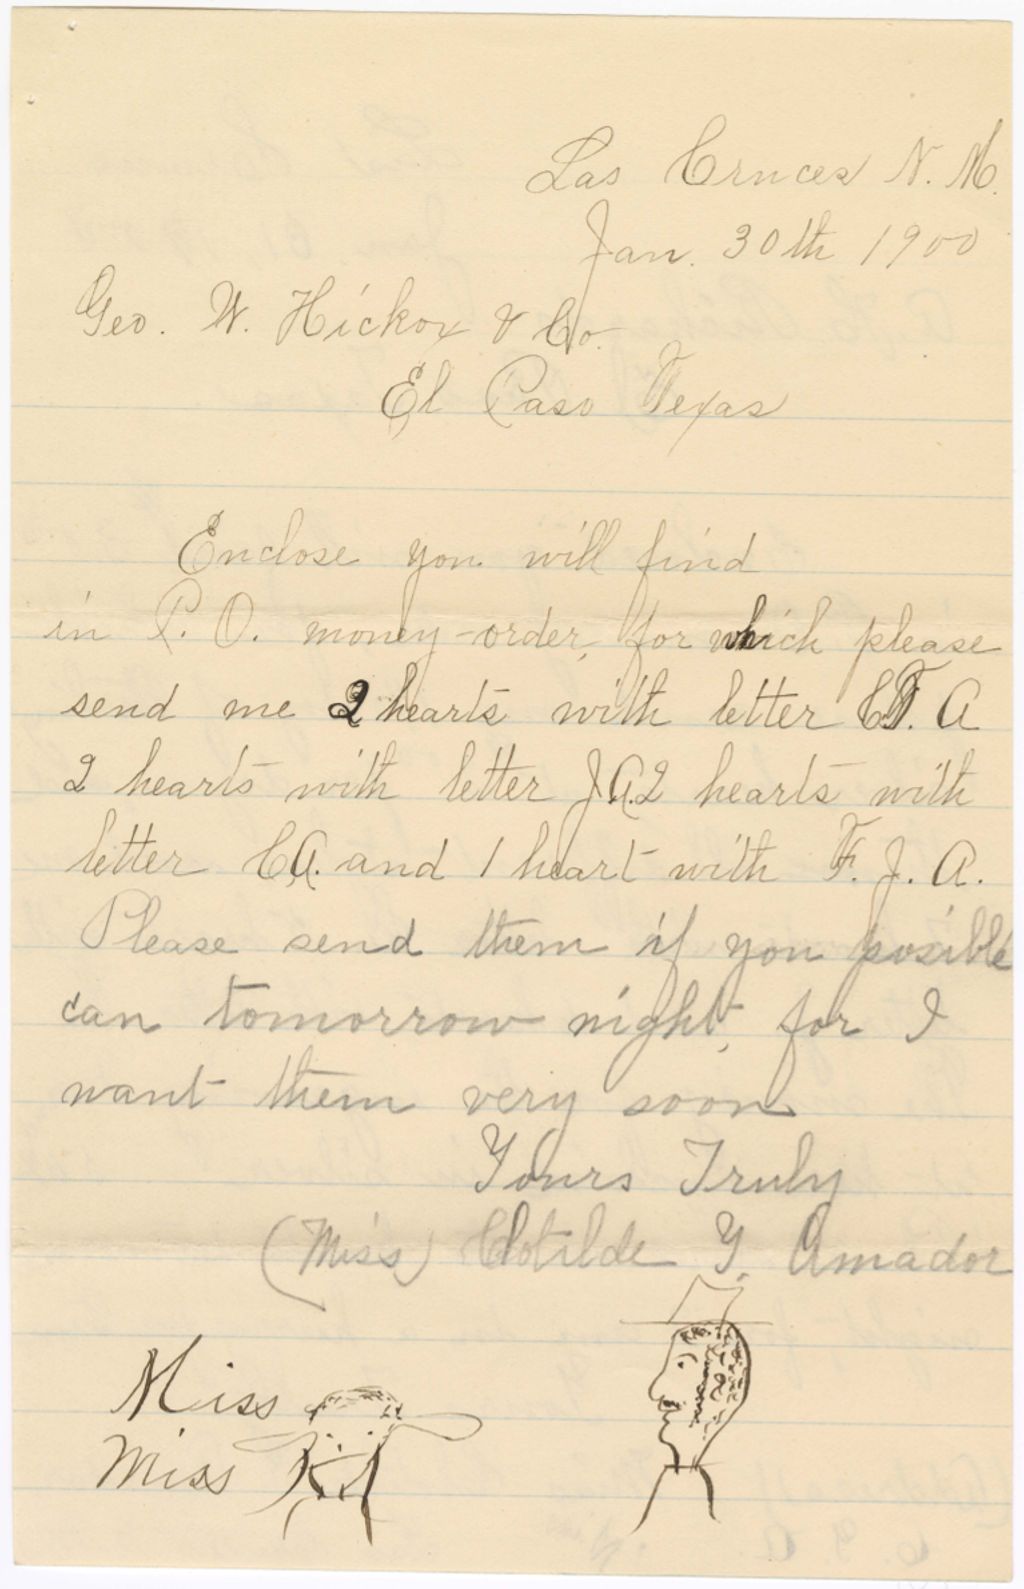 Las Cruces N. M.
Jan. 30th 1900
Geo. W. Hickox & Co.
El Paso Texas
Enclose you will find
in P. O. money-order, for which please
send me 2 hearts with letter C.F. A
2 hearts with letter J.A. 2 hearts with
letter C.A. and 1 heart with F. J. A.
Please send them if you posible
can tomorrow night, for I
want them very soon
Yours Truly
(Miss) Clotilde Y. Amador
Miss
Miss